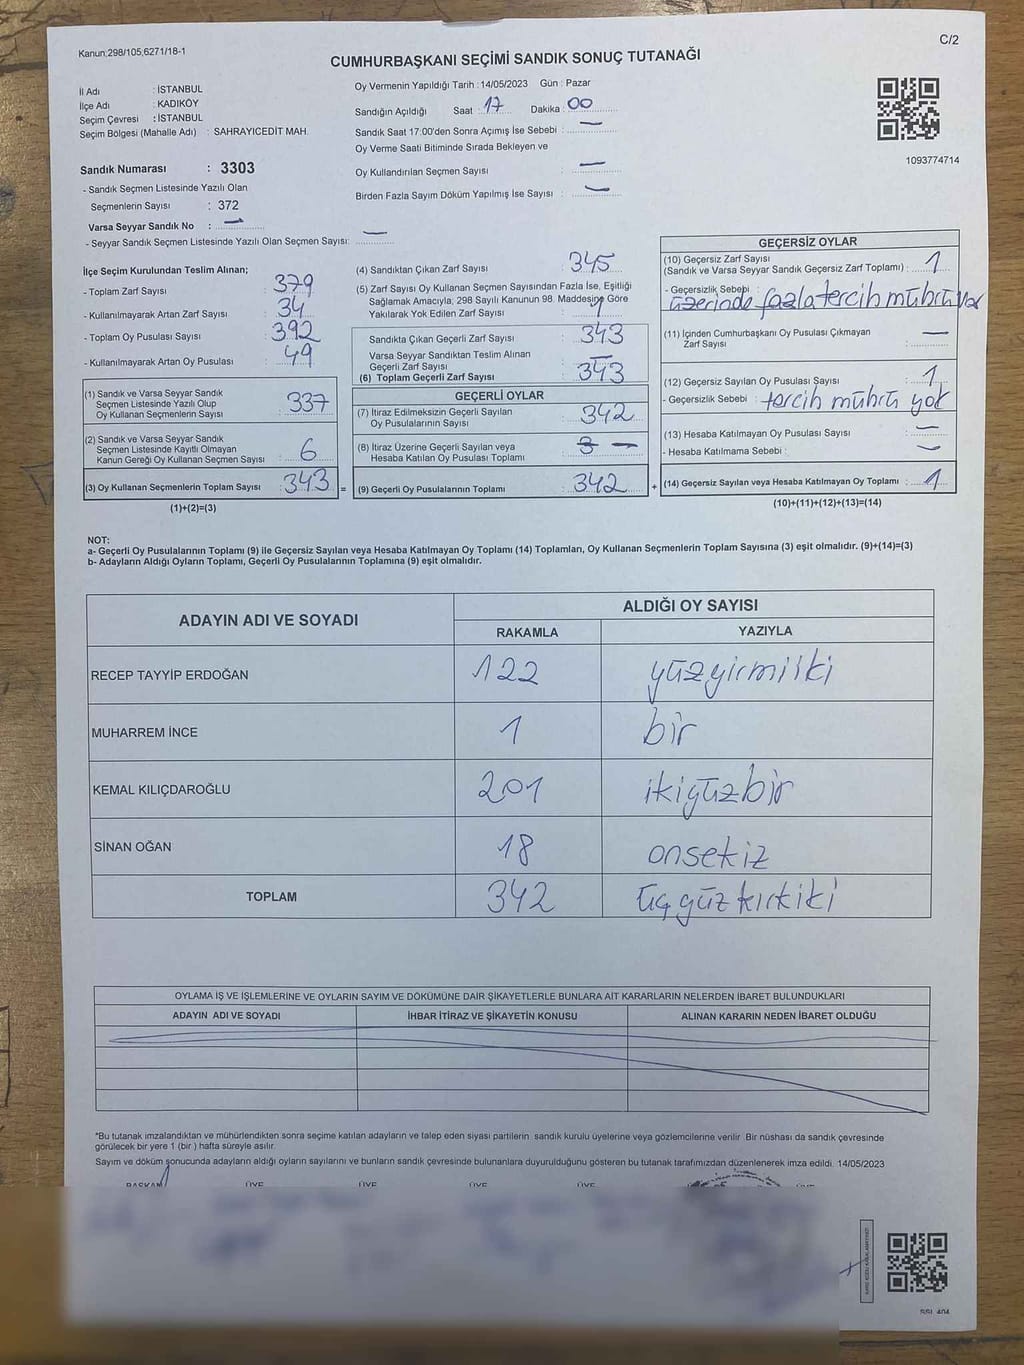 Kanun;298/105,6271/18-1
C/2
CUMHURBAŞKANI SEÇİMİ SANDIK SONUÇ TUTANAĞI
İl Adı : İSTANBUL
İlçe Adı : KADIKÖY
Seçim Çevresi : İSTANBUL
Seçim Bölgesi (Mahalle Adı) : SAHRAYICEDİT MAH.
Oy Vermenin Yapıldığı Tarih : 14/05/2023 Gün : Pazar
Sandığın Açıldığı Saat : 17 Dakika : 00
Sandık Saat 17:00'den Sonra Açımış İse Sebebi : —
Oy Verme Saati Bitiminde Sırada Bekleyen ve
Oy Kullandırılan Seçmen Sayısı : —
Birden Fazla Sayım Döküm Yapılmış İse Sayısı : —
1093774714
Sandık Numarası : 3303
- Sandık Seçmen Listesinde Yazılı Olan
Seçmenlerin Sayısı : 372
Varsa Seyyar Sandık No : —
- Seyyar Sandık Seçmen Listesinde Yazılı Olan Seçmen Sayısı: —
İlçe Seçim Kurulundan Teslim Alınan;
- Toplam Zarf Sayısı : 379
- Kullanılmayarak Artan Zarf Sayısı : 34
- Toplam Oy Pusulası Sayısı : 392
- Kullanılmayarak Artan Oy Pusulası : 49
(1) Sandık ve Varsa Seyyar Sandık
Seçmen Listesinde Yazılı Olup
Oy Kullanan Seçmenlerin Sayısı : 337
(2) Sandık ve Varsa Seyyar Sandık
Seçmen Listesinde Kayıtlı Olmayan
Kanun Gereği Oy Kullanan Seçmen Sayısı : 6
(3) Oy Kullanan Seçmenlerin Toplam Sayısı : 343 =
(1)+(2)=(3)
(4) Sandıktan Çıkan Zarf Sayısı : 345
(5) Zarf Sayısı Oy Kullanan Seçmen Sayısından Fazla İse, Eşitliği
Sağlamak Amacıyla, 298 Sayılı Kanunun 98. Maddesine Göre
Yakılarak Yok Edilen Zarf Sayısı : 1
Sandıkta Çıkan Geçerli Zarf Sayısı : 343
Varsa Seyyar Sandıktan Teslim Alınan
Geçerli Zarf Sayısı : —
(6) Toplam Geçerli Zarf Sayısı : 343
GEÇERLİ OYLAR
(7) İtiraz Edilmeksizin Geçerli Sayılan
Oy Pusulalarının Sayısı : 342
(8) İtiraz Üzerine Geçerli Sayılan veya
Hesaba Katılan Oy Pusulası Toplamı : —
(9) Geçerli Oy Pusulalarının Toplamı : 342 +
GEÇERSİZ OYLAR
(10) Geçersiz Zarf Sayısı
(Sandık ve Varsa Seyyar Sandık Geçersiz Zarf Toplamı) : 1
- Geçersizlik Sebebi :
üzerinde fazla tercih mührü var
(11) İçinden Cumhurbaşkanı Oy Pusulası Çıkmayan
Zarf Sayısı : —
(12) Geçersiz Sayılan Oy Pusulası Sayısı : 1
- Geçersizlik Sebebi : tercih mührü yok
(13) Hesaba Katılmayan Oy Pusulası Sayısı : —
- Hesaba Katılmama Sebebi : —
(14) Geçersiz Sayılan veya Hesaba Katılmayan Oy Toplamı : 1
(10)+(11)+(12)+(13)=(14)
NOT:
a- Geçerli Oy Pusulalarının Toplamı (9) ile Geçersiz Sayılan veya Hesaba Katılmayan Oy Toplamı (14) Toplamları, Oy Kullanan Seçmenlerin Toplam Sayısına (3) eşit olmalıdır. (9)+(14)=(3)
b- Adayların Aldığı Oyların Toplamı, Geçerli Oy Pusulalarının Toplamına (9) eşit olmalıdır.
ADAYIN ADI VE SOYADI ALDIĞI OY SAYISI
RAKAMLA YAZIYLA
RECEP TAYYİP ERDOĞAN 122 yüzyirmiiki
MUHARREM İNCE 1 bir
KEMAL KILIÇDAROĞLU 201 ikiyüzbir
SİNAN OĞAN 18 onsekiz
TOPLAM 342 üçyüzkırkiki
OYLAMA İŞ VE İŞLEMLERİNE VE OYLARIN SAYIM VE DÖKÜMÜNE DAİR ŞİKAYETLERLE BUNLARA AİT KARARLARIN NELERDEN İBARET BULUNDUKLARI
ADAYIN ADI VE SOYADI İHBAR İTİRAZ VE ŞİKAYETİN KONUSU ALINAN KARARIN NEDEN İBARET OLDUĞU
*Bu tutanak imzalandıktan ve mühürlendikten sonra seçime katılan adayların ve talep eden siyasi partilerin sandık kurulu üyelerine veya gözlemcilerine verilir. Bir nüshası da sandık çevresinde
görülecek bir yere 1 (bir ) hafta süreyle asılır.
Sayım ve döküm sonucunda adayların aldığı oyların sayılarını ve bunların sandık çevresinde bulunanlara duyurulduğunu gösteren bu tutanak tarafımızdan düzenlenerek imza edildi. 14/05/2023
BAŞKAN ÜYE ÜYE ÜYE ÜYE